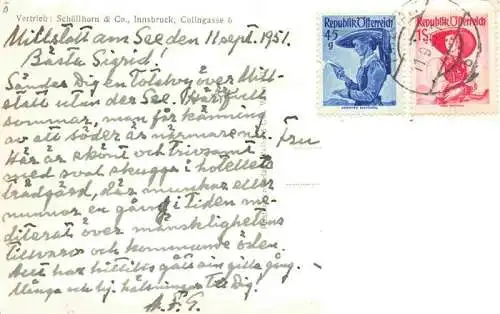 Vertrieb: Schöllhorn & Co., Innsbruck, Colingasse 5
Mittstatt am See den 11 sept. 1951.
Bästa Sigrid!
Sänder Dig en över Mitt-
statt utan der See. Här full
sommar, man får känning
av att söder är närmare.
Fru
Här är skönt och trivsamt
med sval skugga i hotellets
trädgård, där munkar eller
nunnor en gång i tiden me-
diterat över mänsklighetens
tillvaro och kommande öden.
Allt har hittills gått sin gilla gång.
Många och hj. hälsningar till Dig!
A.F.G.
Republik Österreich
45
g
Republik Österreich
1S